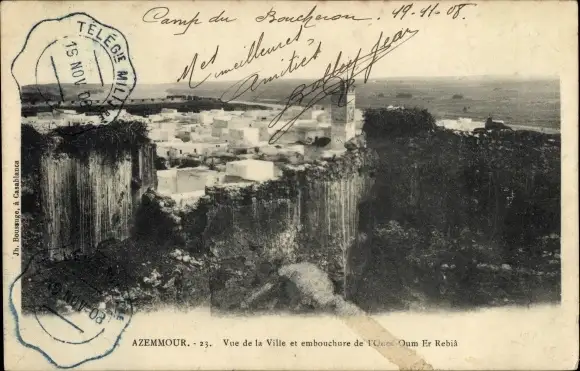 Camp du Boucheron. 19-11-08.
Mes meilleures
Amitiés
TÉLÉGIE MILIT
15 NOV 08
Jh. Boussuge, à Casablanca
NOV 08
AZEMMOUR. - 23. Vue de la Ville et embouchure de l'Oued Oum Er Rebiâ